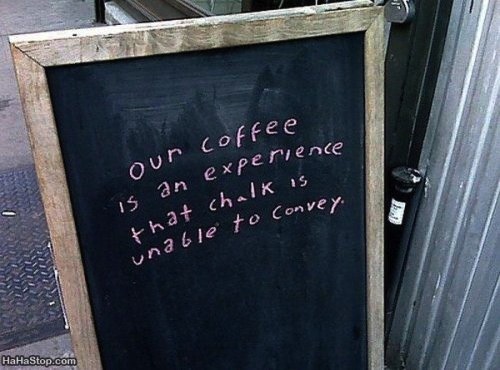 our coffee
is an experience
that chalk is
unable to convey.
HaHaStop.com